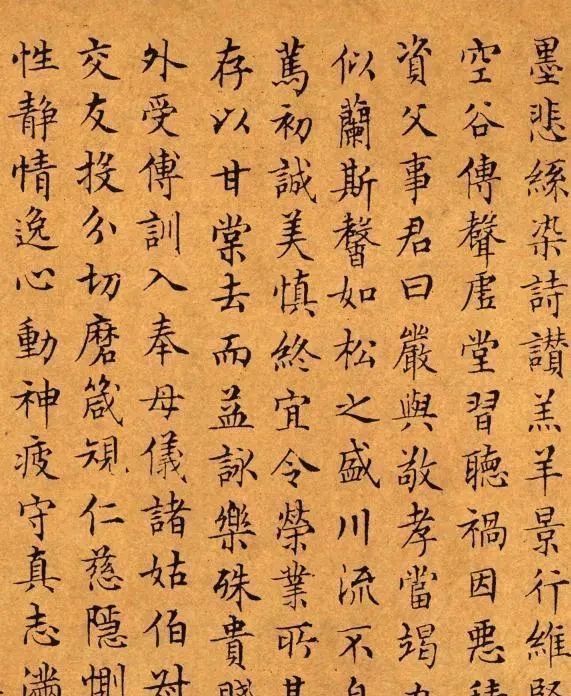 墨悲絲染詩讃羔羊景行維
空谷傳聲虛堂習聽禍因悪
資父事君曰嚴與敬孝當竭
似蘭斯馨如松之盛川流不
篤初誠美慎終宜令榮業所
存以甘棠去而益詠樂殊貴賤
外受傅訓入奉母儀諸姑伯
交友投分切磨箴規仁慈隱惻
性静情逸心動神疲守真志滿